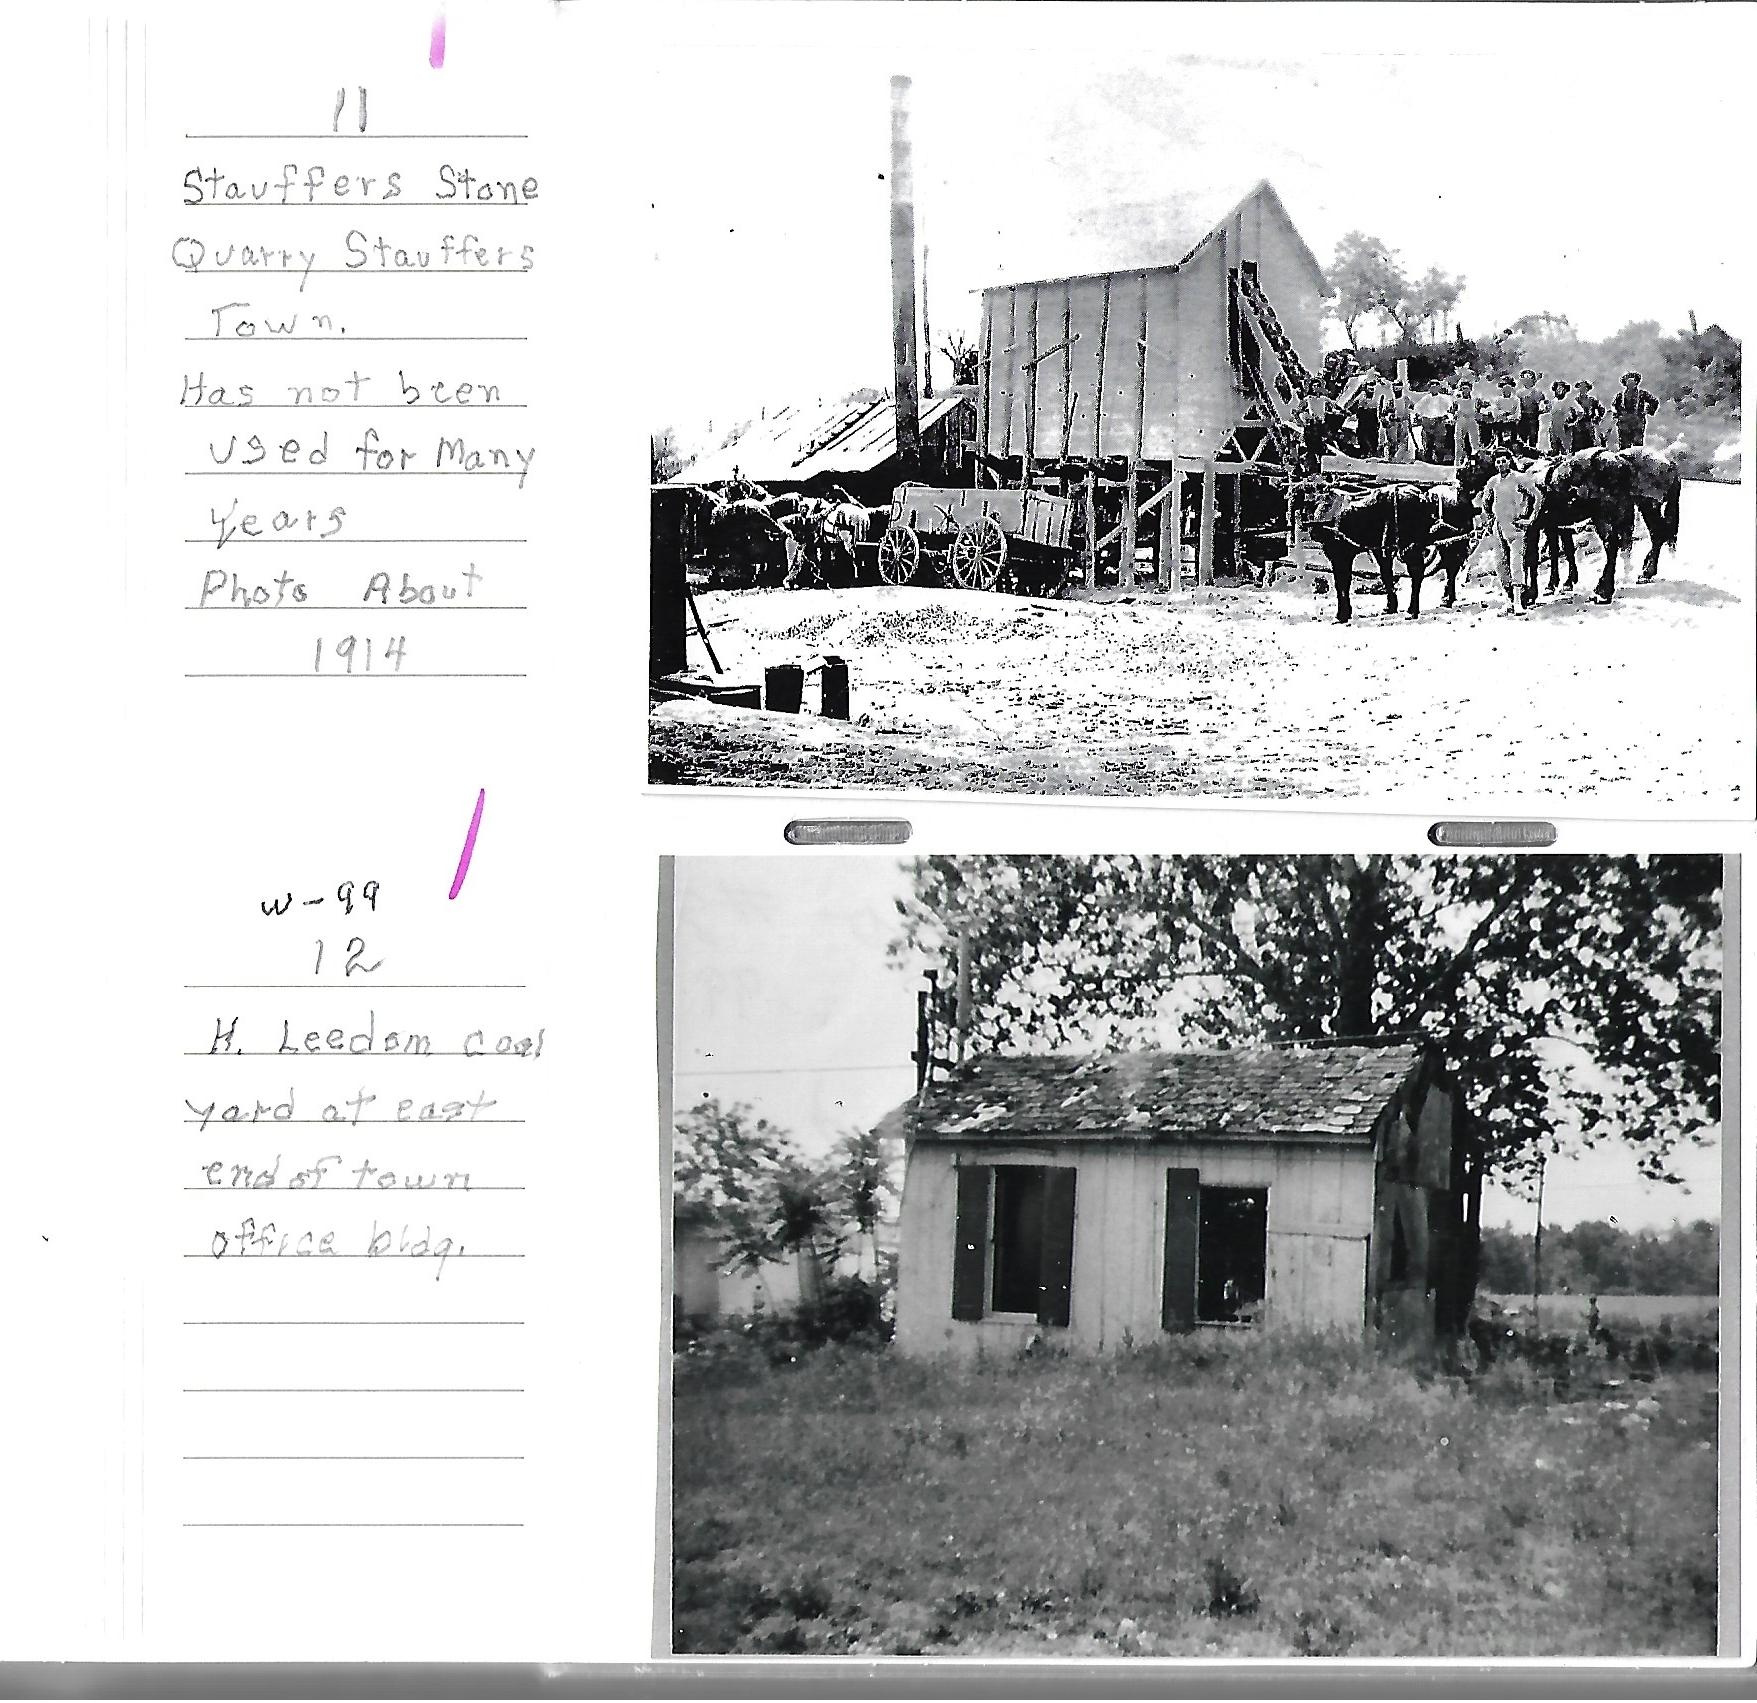 11
Stauffers Stone
Quarry Stauffers
Town.
Has not been
used for Many
years
Photo About
1914
W-99
12
H. Leedom coal
yard at east
end of town
office bldg.